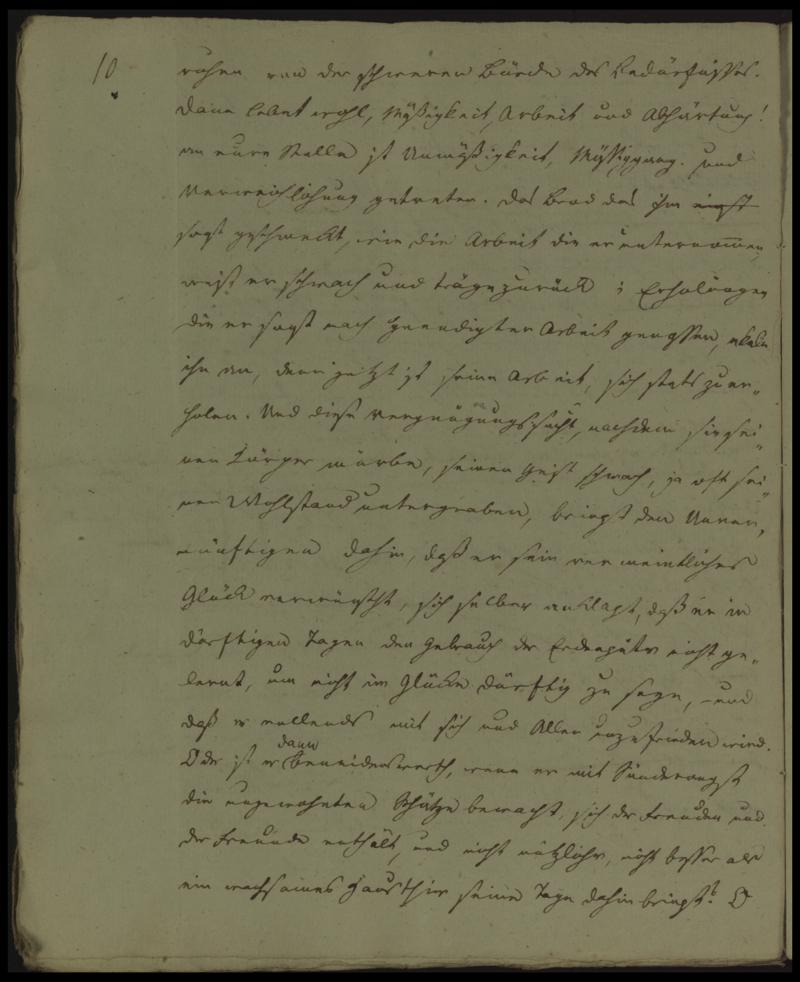 10
ruhen von der schweren Bürde des Bedürfnisses.
Dann lebet wohl, Mäßigkeit, Arbeit und Abhärtung!
an eure Stelle ist Unmäßigkeit, Müssiggang und
Verweichlichung getreten. Das Brod das ihm einst
sagt geschmeckt, wie die Arbeit die er unternommen,
weist er schwach und träge zurück; Erholungen
die er sagt nach geendigter Arbeit genossen, ekeln
ihn an, denn jetzt ist seine Arbeit, sich stets zu er„
holen. Und diese Vergnügungssucht, nachdem sie sei„
nen Körper mürbe, seinen Geist schwach, ja oft sei„
nen Wohlstand untergraben, bringt den Unver„
nünftigen dahin, daß er sein vermeintliches
Glück verwünscht, sich selber anklagt, daß er in
dürftigen Tagen den Gebrauch der Erdengüter nicht ge„
lernt, um nicht im Glücke dürftig zu seyn, und
daß er vollends mit sich und Allen unzufrieden wird.
Oder ist er dann beneidenswerth, wenn er mit Sünderangst
die ungewohnten Schätze bewacht, sich der Freuden und
der Freunde enthält, und nicht nützlicher, nicht besser als
ein wachsames Hausthier seine Tage dahin bringt? O